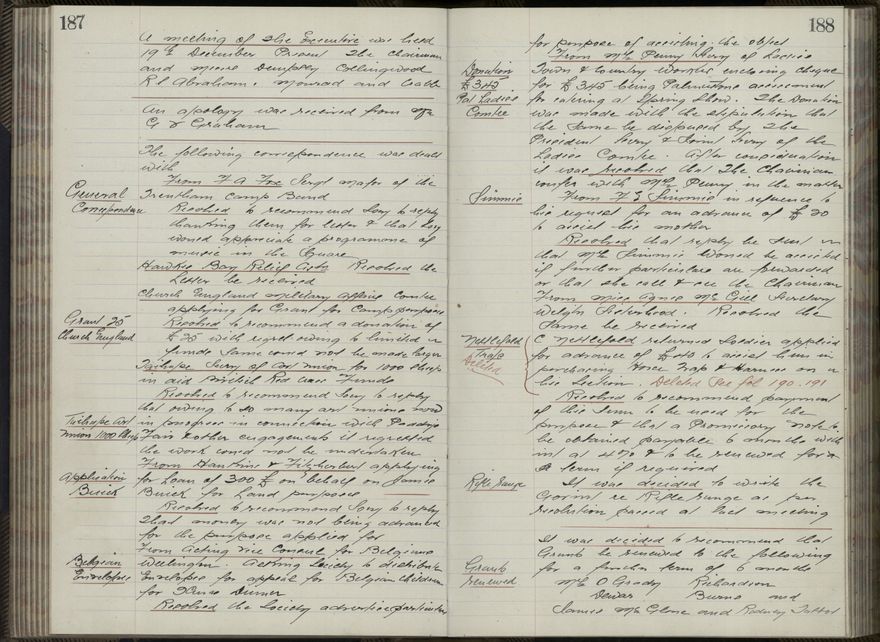 187
A meeting of the Executive was held
19th December Present The Chairman
and Messrs Dempsey Collingwood
R L Abraham. Monrad and Cobb
An apology was received from Mr
G Graham
The following correspondence was dealt
with
From F A Fox Sergt Major of the
General
Trentham Camp Band
Correspondence
Resolved to recommend Socy to reply
thanking them for letter & that Socy
would appreciate a programme of
music in the Square
Hawkes Bay Relief Assn Resolved the
letter be received
Church England Military Affairs Comtee
applying for Grant for Camp purposes
Grant 25
Church England
Resolved to recommend a donation of
£25 with regret owing to limited
funds same could not be made larger
Taihape Secy of Art Union for 1000
in aid British Red Cross Funds
Resolved to recommend Socy to reply
that owing to so many art unions now
Taihape Art
Union 1000
in progress in connection with Paddys
Fair & other engagements it regretted
the work could not be undertaken
From Hankins & Fitzherbert applying
Application
Buick
for Loan of 300 £ on behalf on James
Buick for Land purposes
Resolved to recommend Socy to reply
that money was not being advanced
for the purpose applied for
From Acting Vice Consul for Belgium
Belgian
Envelopes
Wellington. Asking Society to distribute
Envelopes for appeal for Belgian children
for Xmas Dinner
Resolved the Society advertise particulars
188
for purpose of assisting the object
From Mrs Penny Secy of Ladies
Donation
£345
Pal Ladies
Comtee
Town & Country Workers enclosing cheque
for £345 being Palmerston assessment
for catering at Spring Show. The Donation
was made with the stipulation that
the same be disposed by the
President Secy & Joint Secy of the
Ladies Comtee. After consideration
it was Resolved that the Chairman
confer with Mrs Penny in the matter
Simmie
From F G Simmie in reference to
his request for an advance of £20
to assist his mother
Resolved that reply be sent
that Mrs Simmie would be assisted
if further particulars are forwarded
or that she call & see the Chairman
From Miss Agnes McGill Secretary
Resolved the
same be received
Nettlefold
Trap
Deleted
C Nettlefold returned Soldier applied
for advance of £40 to assist him in
purchasing Horse Trap & Harness on
his Section. Deleted See fol 190. 191
Resolved to recommend payment
of this sum to be used for the
purpose & that a Promissory note to
be obtained payable 6 months with
int at 4% & to be renewed for
a term if required
Rifle Range
It was decided to write the
Govmt re Rifle range as per
resolution passed at last meeting
It was decided to recommend that
Grants be renewed to the following
Grants
renewed
for a further term of 6 months
Mrs O Grady Richardson
Dewar Burns and
James McGlone and Rodney Talbot